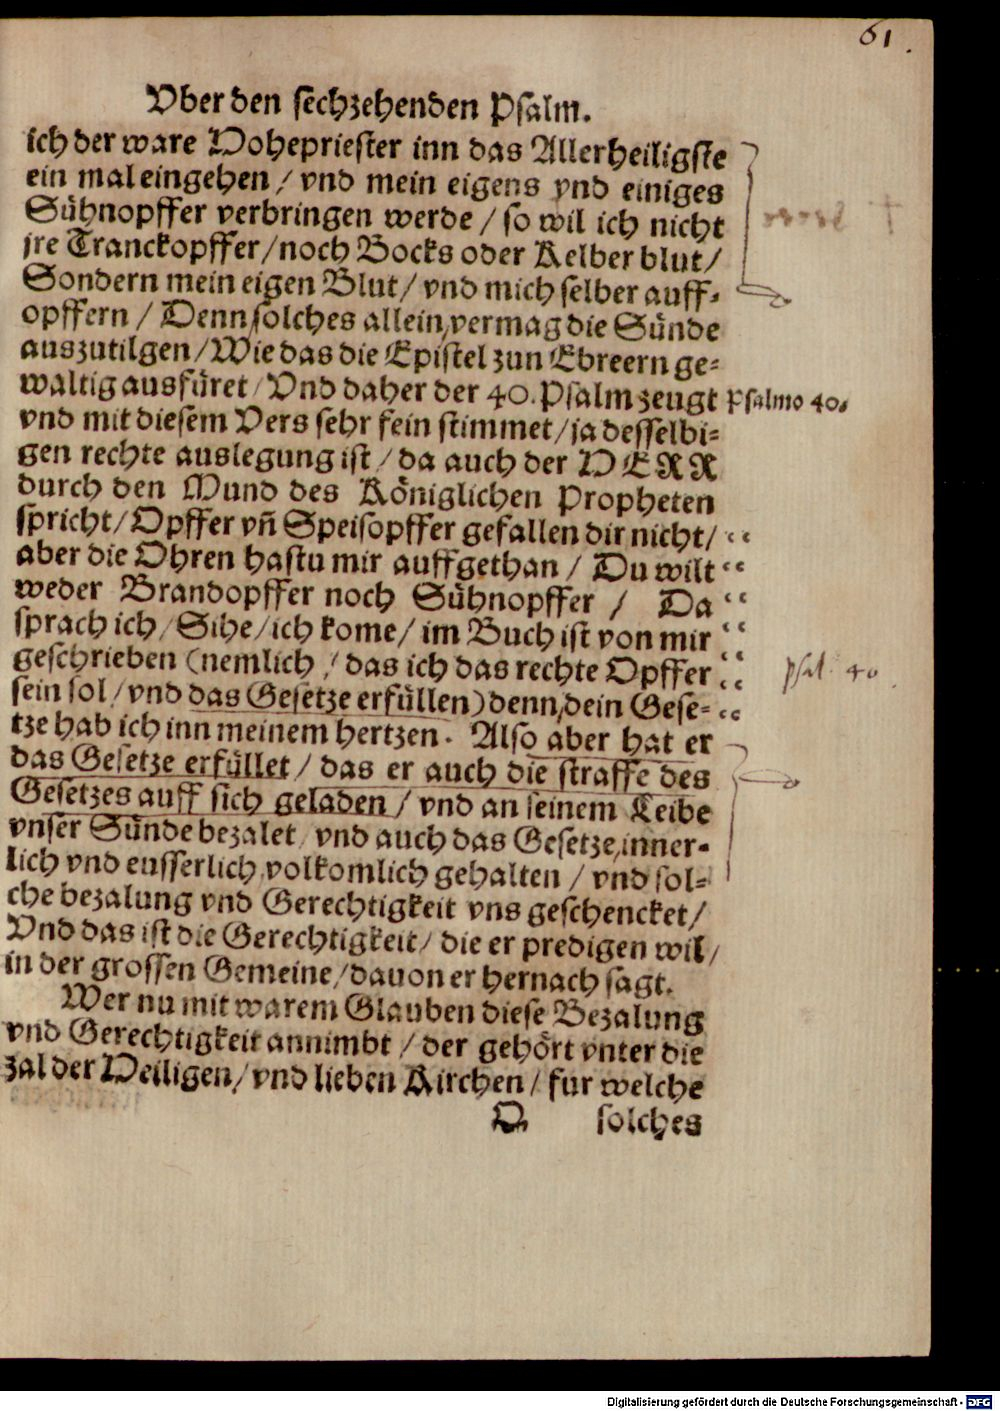 61.
Vber den sechzehenden Psalm.
ich der ware Hohepriester inn das Allerheiligste
ein mal eingehen / vnd mein eigens vnd einiges
Sühnopffer verbringen werde / so wil ich nicht
jre Tranckopffer / noch Bocks oder Kelber blut /
Sondern mein eigen Blut / vnd mich selber auff-
opffern / Denn solches allein vermag die Sünde
auszutilgen / Wie das die Epistel zun Ebreern ge-
waltig ausfüret / Vnd daher der 40. Psalm zeugt Psalmo 40.
vnd mit diesem Vers sehr fein stimmet / ja desselbi-
gen rechte auslegung ist / da auch der HERR
durch den Mund des Königlichen Propheten
spricht / Opffer vñ Speisopffer gefallen dir nicht /
aber die Ohren hastu mir auffgethan / Du wilt
weder Brandopffer noch Sühnopffer / Da
sprach ich / Sihe / ich kome / im Buch ist von mir
geschrieben (nemlich / das ich das rechte Opffer psal. 40.
sein sol / vnd das Gesetze erfüllen) denn dein Gese-
tze hab ich inn meinem hertzen. Also aber hat er
das Gesetze erfüllet / das er auch die straffe des
Gesetzes auff sich geladen / vnd an seinem Leibe
vnser Sünde bezalet / vnd auch das Gesetze inner-
lich vnd eusserlich volkomlich gehalten / vnd sol-
che bezalung vnd Gerechtigkeit vns geschencket /
Vnd das ist die Gerechtigkeit / die er predigen wil /
in der grossen Gemeine / dauon er hernach sagt.
Wer nu mit warem Glauben diese Bezalung
vnd Gerechtigkeit annimbt / der gehört vnter die
zal der Heiligen / vnd lieben Kirchen / fur welche
Q solches
Digitalisierung gefördert durch die Deutsche Forschungsgemeinschaft - DFG